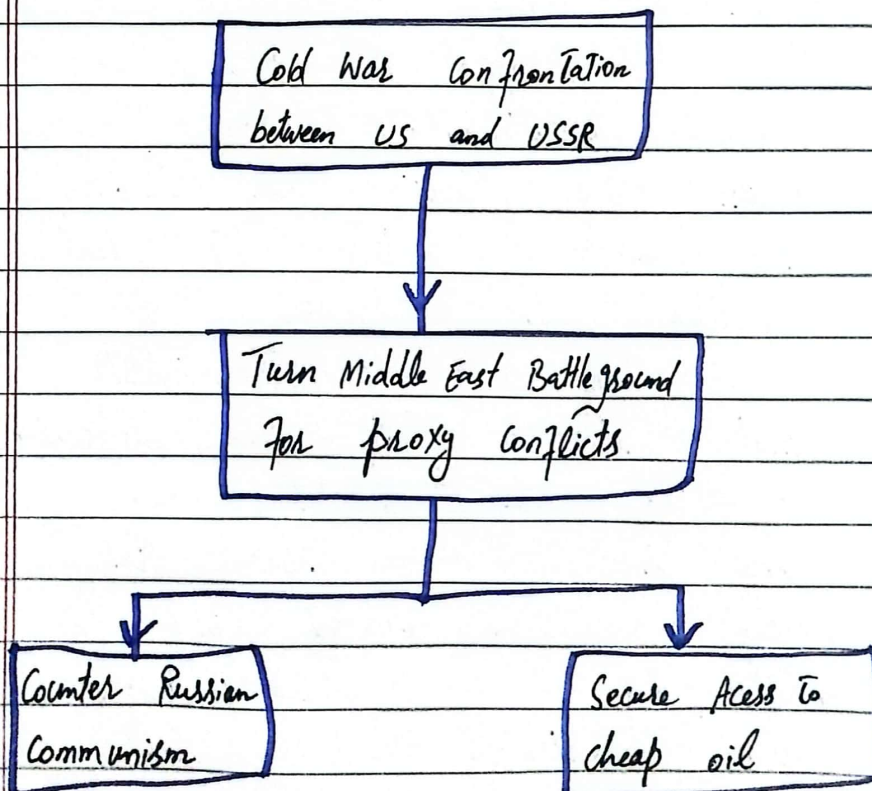 Cold War Confrontation
between US and USSR
Turn Middle East Battleground
For proxy conflicts
Counter Russian
Communism
Secure Acess To
cheap oil